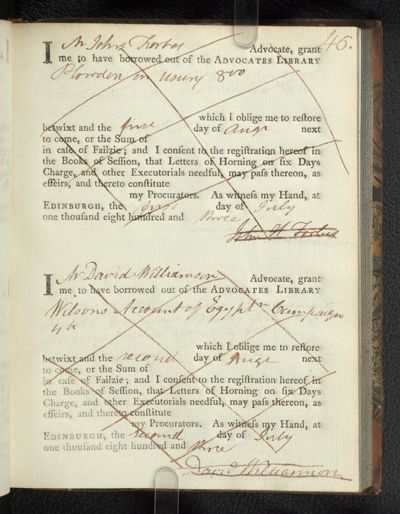 45.
I Mr John Forbes Advocate, grant
me to have borrowed out of the ADVOCATES LIBRARY
Plowden on usury 8vo
which I oblige me to reſtore
betwixt and the first day of Augt next
to come, or the Sum of
in caſe of Failzie; and I conſent to the regiſtration hereof in
the Books of Seſſion, that Letters of Horning on ſix Days
Charge, and other Executorials needful, may paſs thereon, as
effeirs, and thereto conſtitute
my Procurators. As witneſs my Hand, at
EDINBURGH, the first day of July
one thouſand eight hundred and three
John H Forbes
I Mr David Williamson Advocate, grant
me to have borrowed out of the ADVOCATES LIBRARY
Wilsons Account of Egyptn Campaign
4to
which I oblige me to reſtore
betwixt and the second day of Augt next
to come, or the Sum of
in caſe of Failzie; and I conſent to the regiſtration hereof in
the Books of Seſſion, that Letters of Horning on ſix Days
Charge, and other Executorials needful, may paſs thereon, as
effeirs, and thereto conſtitute
my Procurators. As witneſs my Hand, at
EDINBURGH, the second day of July
one thouſand eight hundred and three
David Williamson